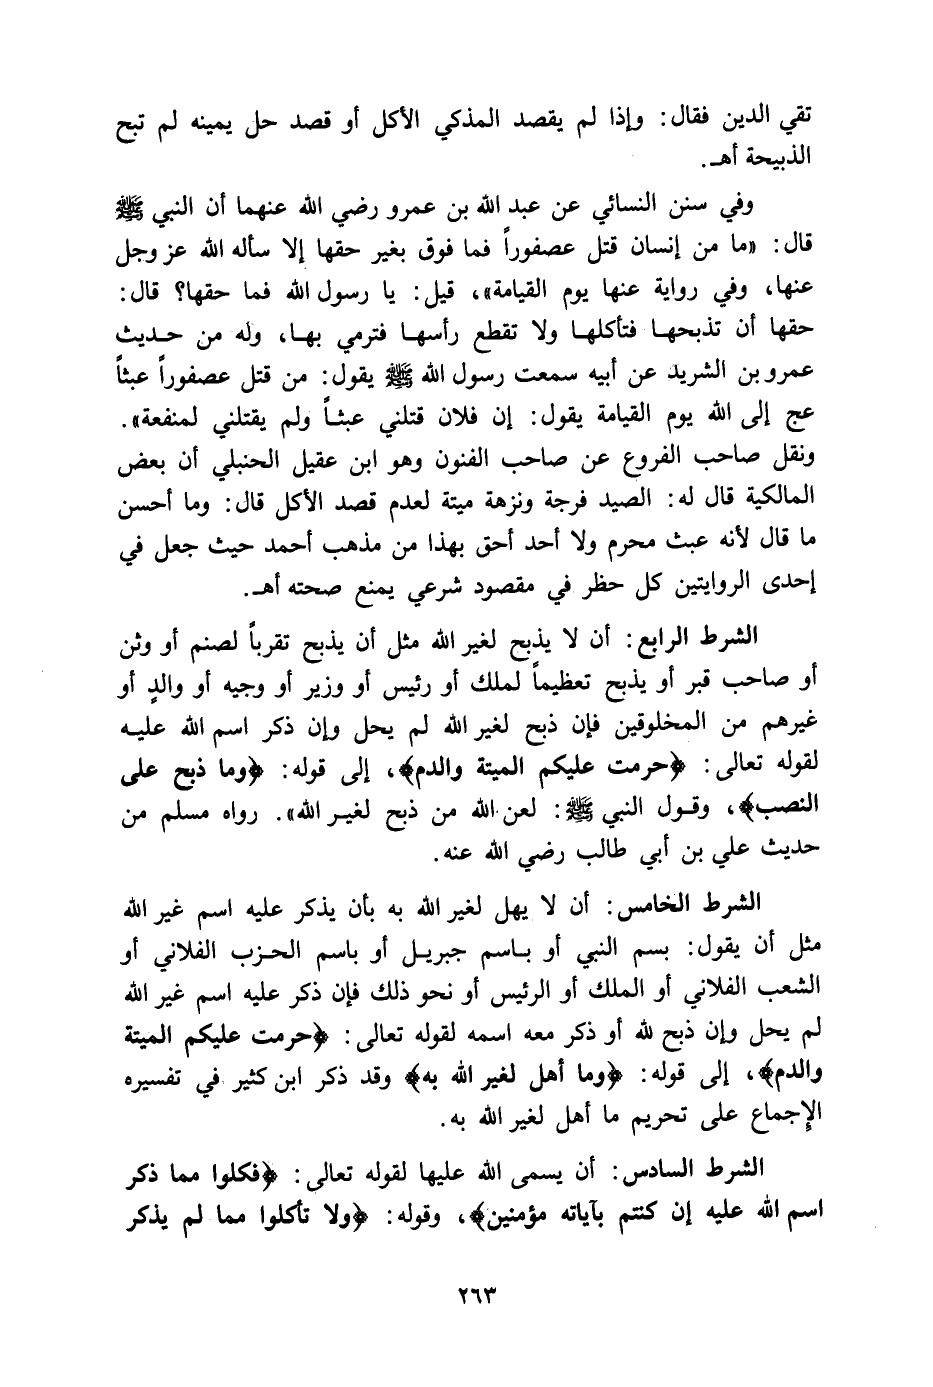 تقي الدين فقال: وإذا لم يقصد المذكي الأكل أو قصد حل يمينه لم تبح
الذبيحة أهـ.
وفي سنن النسائي عن عبد الله بن عمرو رضي الله عنهما أن النبي ﷺ
قال: «ما من إنسان قتل عصفوراً فما فوق بغير حقها إلا سأله الله عز وجل
عنها، وفي رواية عنها يوم القيامة»، قيل: يا رسول الله فما حقها؟ قال:
حقها أن تذبحهـا فتأكلهـا ولا تقطع رأسهـا فترمي بهـا، وله من حـديث
عمرو بن الشريد عن أبيه سمعت رسول الله ﷺ يقول: من قتل عصفوراً عبثاً
عج إلى الله يوم القيامة يقول: إن فلان قتلني عبثـاً ولم يقتلني لمنفعة».
ونقل صاحب الفروع عن صاحب الفنون وهو ابن عقيل الحنبلي أن بعض
المالكية قال له: الصيد فرجة ونزهة ميتة لعدم قصد الأكل قال: وما أحسن
ما قال لأنه عبث محرم ولا أحد أحق بهذا من مذهب أحمد حيث جعل في
إحدى الروايتين كل حظر في مقصود شرعي يمنع صحته أهـ.
الشرط الرابع: أن لا يذبح لغير الله مثل أن يذبح تقرباً لصنم أو وثن
أو صاحب قبر أو يذبح تعظيماً لملك أو رئيس أو وزير أو وجيه أو والدٍ أو
غيرهم من المخلوقين فإن ذبح لغير الله لم يحل وإن ذكر اسم الله عليـه
لقوله تعالى: ﴿حرمت عليكم الميتة والدم﴾، إلى قوله: ﴿وما ذبح على
النصب﴾، وقـول النبي ﷺ: لعن الله من ذبح لغيـر الله». رواه مسلم من
حديث علي بن أبي طالب رضي الله عنه.
الشرط الخامس: أن لا يهل لغير الله به بأن يذكر عليه اسم غير الله
مثل أن يقول: بسم النبي أو بـاسم جبريـل أو باسم الحـزب الفلاني أو
الشعب الفلاني أو الملك أو الرئيس أو نحو ذلك فإن ذكر عليه اسم غير الله
لم يحل وإن ذبح لله أو ذكر معه اسمه لقوله تعالى: ﴿حرمت عليكم الميتة
والدم﴾، إلى قوله: ﴿وما أهل لغير الله به﴾ وقد ذكر ابن كثير في تفسيره
الإجماع على تحريم ما أهل لغير الله به.
الشرط السادس: أن يسمى الله عليها لقوله تعالى: ﴿فكلوا مما ذكر
اسم الله عليه إن كنتم بآياته مؤمنين﴾، وقوله: ﴿ولا تأكلوا مما لم يذكر
٢٦٣